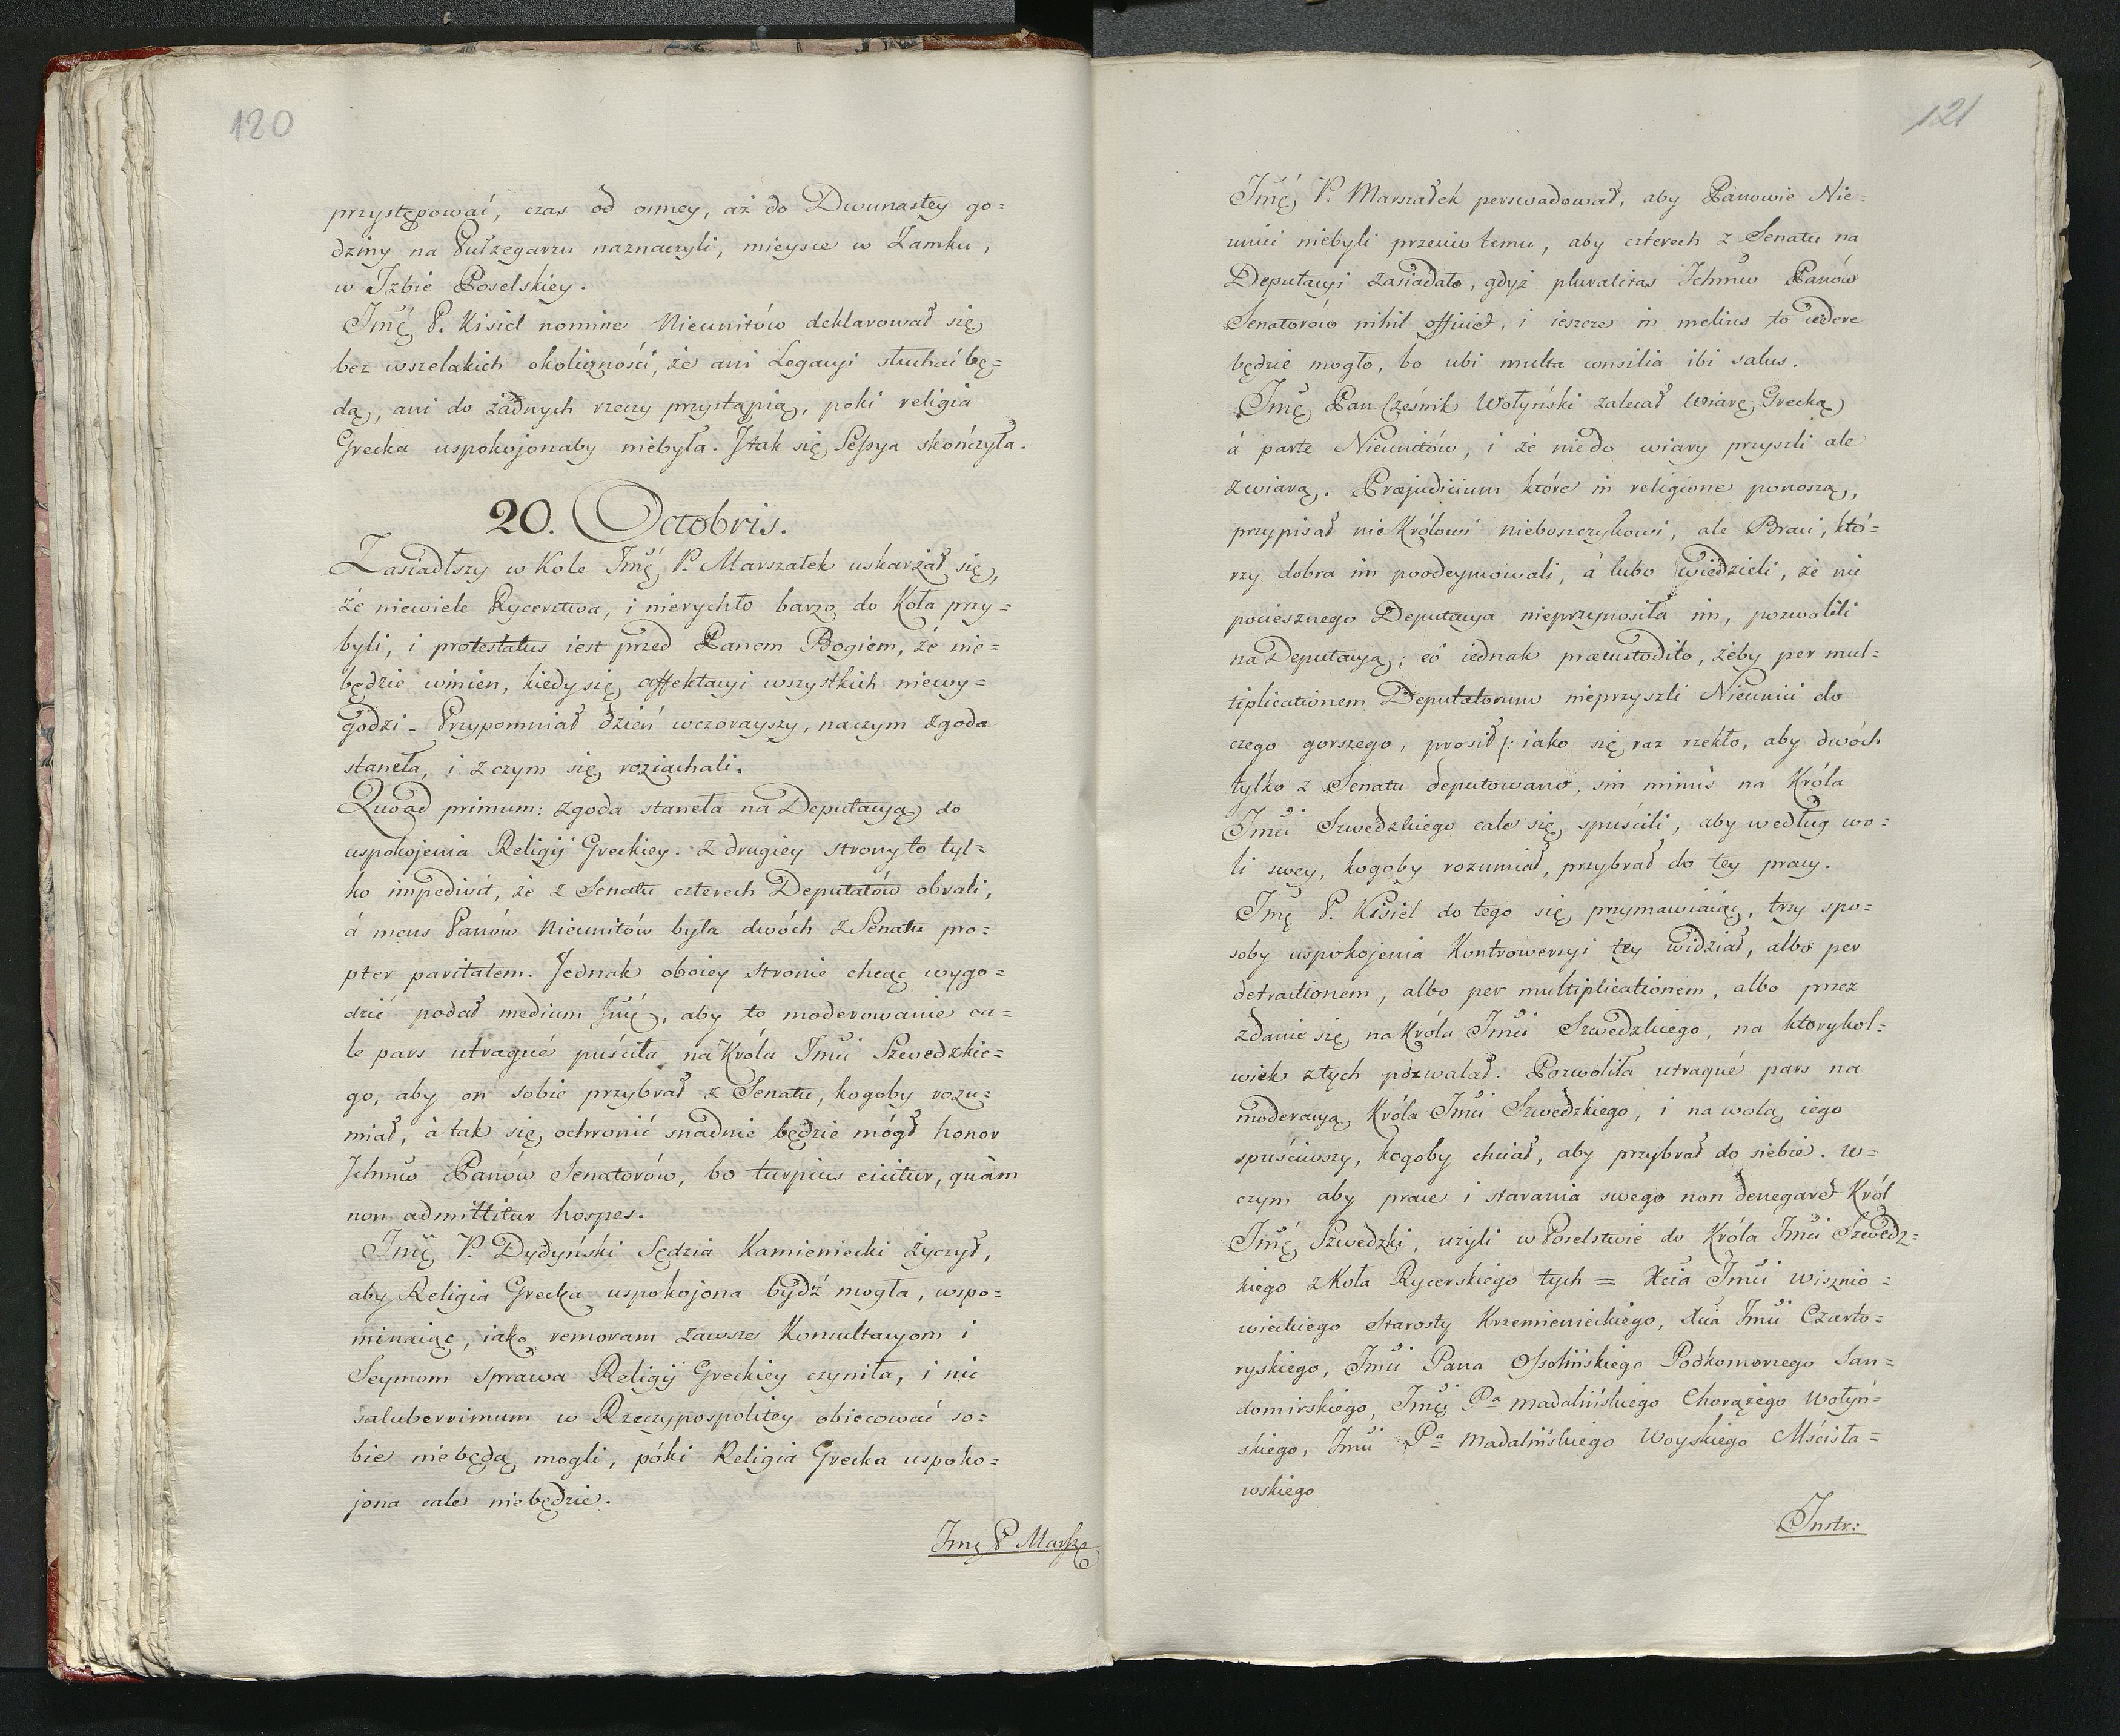 120
przystępować, czas od osmey, aż do Dwunastey go=
dziny na Pułzegarzu naznaczyli, mieysce w Zamku,
w Izbie Poselskiey.
Jmć P. Kisiel nomine Nieunitów deklarował się
bez wszelakich okoliczności, że ani Legacyi słuchać bę=
dą, ani do żadnych rzeczy przystąpią, poki religia
Grecka uspokojonaby niebyła. Jtak się Sessya skończyła.
20. Octobris.
Zasiadłszy w Kole Jmć P. Marszałek uskarżał się,
że niewiele Rycerstwa, i nierychło barzo do Koła przy=
byli, i protestatus iest przed Panem Bogiem, że nie=
będzie winien, kiedy się affektacyi wszystkich niewy=
godzi. Przypomniał dzień wczorayszy, naczym zgoda
staneła, i z czym się roziachali.
Quoad primum: zgoda staneła na Deputacyą do
uspokojenia Religij Greckiey. z drugiey strony to tyl=
ko impedivit, że z Senatu czterech Deputatów obrali,
á mens Panów Nieunitów była dwóch z Senatu pro=
pter paritatem. Jednak oboiey stronie chcąc wygo=
dzić podał medium Jmć, aby to moderowanie ca=
le pars utraqué puściła na Króla Jmci Szwedzkie=
go, aby on sobie przybrał z Senatu, kogoby rozu=
miał, à tak się ochronić snadnie będzie mógł honor
Jchmw Panów Senatorów, bo turpius eiicitur, quàm
non admittitur hospes.
Jmć P. Dydyński Sędzia Kamieniecki życzył,
aby Religia Grecka uspokojona bydź mogła, wspo=
minaiąc, iako remoram zawsze Konsultacyom i
Seymom sprawa Religij Greckiey czyniła, i nic
saluberrimum w Rzeczypospolitey obiecować so=
bie niebędą mogli, póki Religia Grecka uspoko=
jona cale niebędzie.
Jmć P Marsz
121
Jmć P. Marszałek perswadował, aby Panowie Nie=
unici niebyli przeciw temu, aby czterech z Senatu na
Deputacyi zasiadało, gdyż pluralitas Jchmw Panów
Senatorów nihil officiet, i ieszcze in melius to cedere
będzie mogło, bo ubi multa consilia ibi salus.
Jmć Pan Cześnik Wołyński zalecał Wiarę Grecką
á parte Nieunitów, i że niedo wiary przyszli ale
zwiarą. Præjudicium które in religione ponoszą,
przypisał nie Królowi nieboszczykowi, ale Braci, któ=
rzy dobra im poodeymowali, á lubo wiedzieli, że nic
pociesznego Deputacya nieprzynosiła im, pozwolili
na Deputacyą; eó iednak præcustodito, żeby per mul=
tiplicationem Deputatorum nieprzyszli Nieunici do
czego gorszego, prosił /: iako się raz rzekło, aby dwóch
tylko z Senatu deputowano, sin minùs na Króla
Jmci Szwedzkiego cale się spuścili, aby według wo=
li swey, kogoby rozumiał, przybrał do tey pracy.
Jmć P. Kisiel do tego się przymawiaiąc, trzy spo=
soby uspokojenia Kontrowersyi tey widział, albo per
detractionem, albo per multiplicationem, albo przez
zdanie się na Króla Jmci Szwedzkiego, na ktorykol=
wiek z tych pozwalał. Pozwoliła utraqué pars na
moderacyą Króla Jmci Szwedzkiego, i na wolą iego
spuściwszy, kogoby chciał, aby przybrał do siebie. w=
czym aby prace i starania swego non denegaret Król
Jmć Szwedzki, użyli w Poselstwie do Króla Jmci Szwedz=
kiego z Koła Rycerskiego tych = Xcia Jmci Wisznio=
wieckiego Starosty Krzemienieckiego, Xcia Jmci Czarto=
ryskiego, Jmci Pana Ossolińskiego Podkomorzego San=
domirskiego, Jmći Pa Madalińskiego Chorążego Wołyń=
skiego, Jmci Pa Madalińskiego Woyskiego Mścisła=
wskiego
Instr: